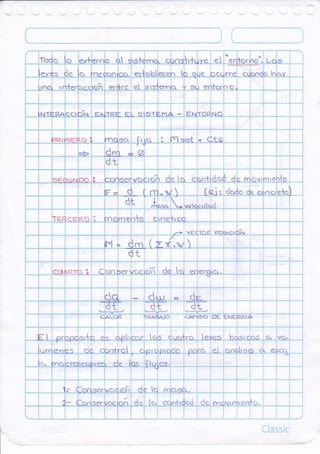 Todo lo externo al sistema constituye el "entorno". Las
leyes de la mecanica establecen lo que ocurre cuando hay
una interacción entre el sistema y su entorno.
INTERACCIÓN ENTRE EL SISTEMA - ENTORNO
PRIMERO: masa fija : Msist = Cte
=> dm/dt = 0
SEGUNDO: conservacion de la cantidad de movimiento
F = d/dt (m.v) (Ej: dado de concreto)
masa velocidad
TERCERO: momento cinetico
VECTOR POSICIÓN
M = dm/dt (Σr.v)
CUARTO: Conservacion de la energia.
dQ/dt - dw/dt = dE/dt
CALOR TRABAJO CAMBIO DE ENERGIA
El proposito es aplicar las cuatro leyes basicas a vo-
lumenes de control, apropiado para el analisis a esca
la macroscopica de los flujos.
1- Conservacion de la masa.
2- Conservacion de la cantidad de movimiento.
Classic